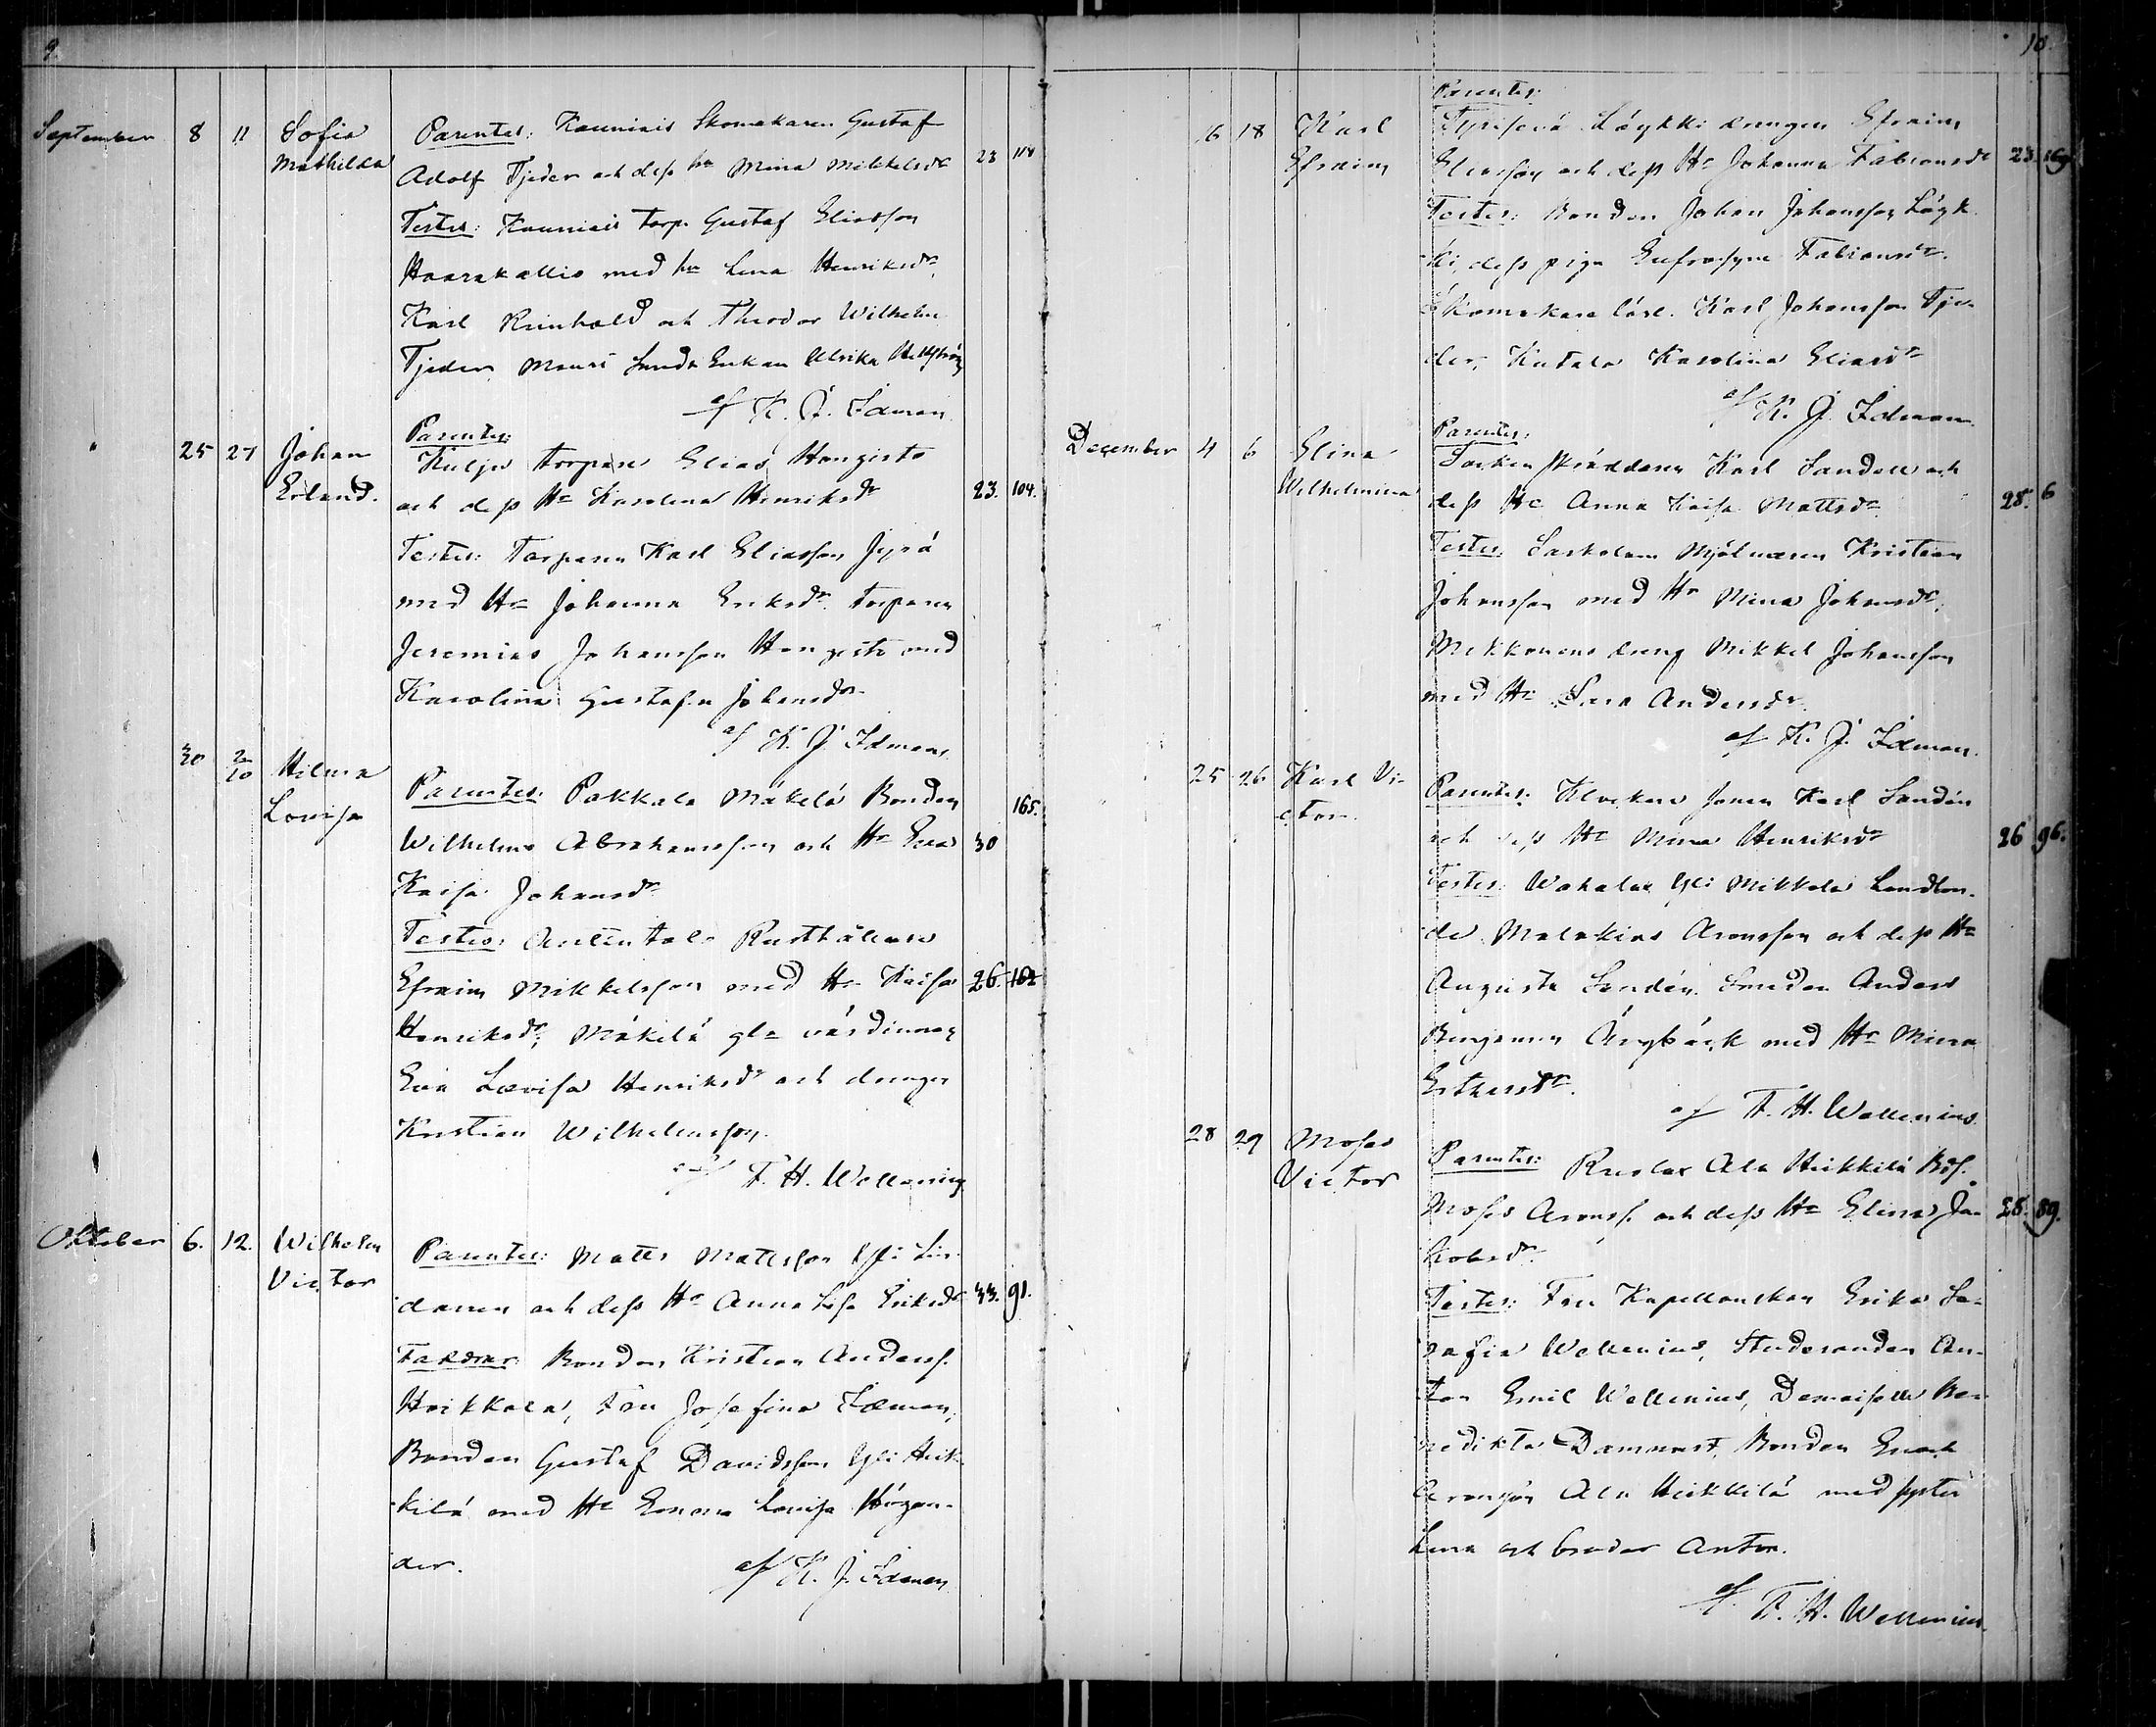 9.
September 8 11 Sofia Parentes: Kauniais Skomakaren Gustaf
Mathilda Adolf Tjeder och dess hu Mina Mikkelsdr 23 118
Testes: Kauniais torp. Gustaf Eliasson
Haarakallio med hu Lena Henriksdr,
Karl Reinhold och Theodor Wilhelm
Tjeder, Enkan Ulrika Hellström
af K. J. Idman
" 25 27 Johan Parentes:
torpare Elias Hongisto
Erland. och dess Hu Karolina Henriksdr 23. 104.
Testes: Torparen Karl Eliasson Jyrä
med Hu Johanna Eriksdr. torparen
Jeremias Johansson Hongisto med
Karolina Gustafa Johansdr
af K. J. Idman
30 2/10 Hilma
Lovisa Parentes: Pakkala Mäkelä Bonden 165.
Wilhelm Abrahamsson och Hu Eva 30
Kaisa Johansdr
Testes: Anttentalo Rusthållare
Efraim Mikkelsson med Hu Kaisa 26. 102
Henriksdr, Mäkilä gla värdinnan
Eva Lovisa Henriksdr och drengen
Kristian Wilhelmsson.
af F. H. Wallenius
Oktober 6. 12. Wilhelm Parentes: Matts Mattsson Yli Lin-
Victor danen och dess Hu Anna Lisa Eriksdr 33. 91.
Faddrar: Bonden Kristian Anderss.
Heikkala, fru Josefina Idman,
Bonden Gustaf Davidsson Yli Heik-
kilä med Hu Emma Lovisa Högan-
der. af K. J. Idman
10.
Parentes:
16 18 Karl Löykki drengen Efraim
Efraim Eliasson och dess Hu Johanna Fabiansdr 23. 169
Testes: Bonden Johan Johansson Löyk-
ki, dess piga Eufrosyne Fabiansdr.
Skomakare lärl. Karl Johansson Tje-
der, Katala Karolina Eliasdr
af K. J. Idman
Parentes:
December 4 6 Elina Socken skräddaren Karl Sandell och
Wilhelmina dess Hu Anna Kaisa Mattsdr 28. 6
Testes: Mjölnaren Kristian
Johansson med Hu Mina Johansdr,
Mikkonens dreng Mikkel Johansson
med Hu Sara Andersdr
af K. J. Idman.
25 26 Karl Vi- Parentes: Klockare Karl Sandén
ctor. och dess Hu Mina Henriksdr 26 96.
Testes: Wahala Yli Mikkola Landbon-
de Malakias Aronsson och dess Hu
Augusta Sandén. Smeden Anders
Benjamin Ängbäck med Hu Mina
Esthersdr.
af F. H. Wallenius.
28 29 Moses Parentes: Ala Heikkilä
Victor Moses Aronss. och dess Hu Elina Ja- 28. 89.
kobsdr.
Testes: Fru Kapellanskan Erika Se-
rafia Wallenius, Studeranden An-
ton Emil Wallenius, Demoiselle Be-
nedikta Bonden Enoch
Aronson Ala Heikkilä med syster
Lena och broder Anton.
af F. H. Wallenius.